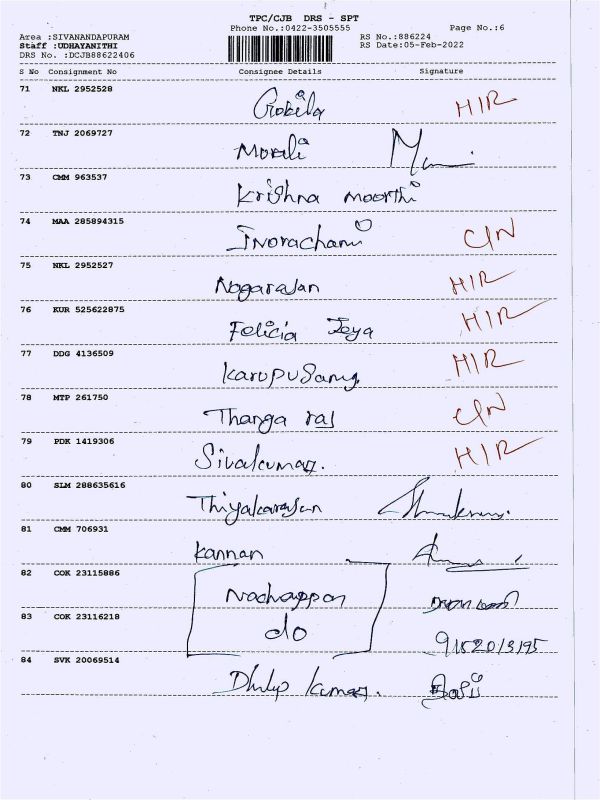 TPC/CJB DRS - SPT
Phone No.:0422-3505555 Page No.:6
Area :SIVANANDAPURAM RS No.:886224
Staff :UDHAYANITHI RS Date:05-Feb-2022
DRS No. :DCJB88622406
S No Consignment No Consignee Details Signature
71 NKL 2952528 Gokila H/R
72 TNJ 2069727 Morali
73 CMM 963537 Krishna moorthi
74 MAA 285894315 C/N
75 NKL 2952527 Nogarajan H/R
76 KUR 525622875 Felicia Jeya H/R
77 DDG 4136509 Karupusamy H/R
78 MTP 261750 Thanga raj C/N
79 PDK 1419306 Sivakumar. H/R
80 SLM 288635616 Thiyakarajan
81 CMM 706931 Kannan
82 COK 23115886 Nachappan
83 COK 23116218 do
84 SVK 20069514 Dhilip Kumar.